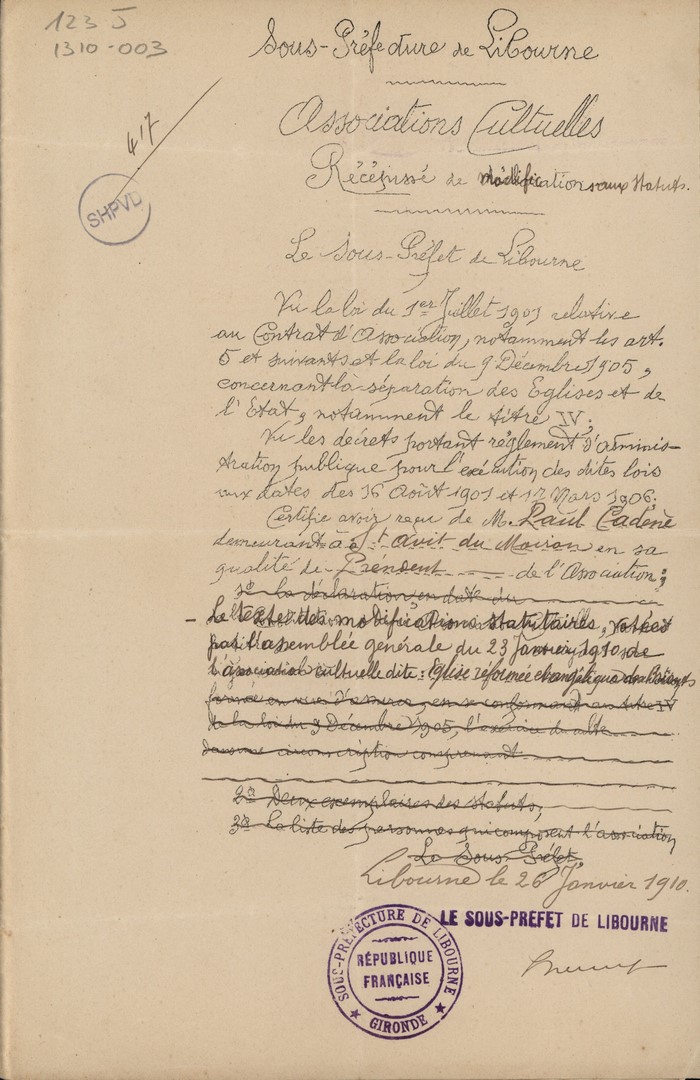 123 J
1310-003
417
SHPVD
Sous-Préfecture de Libourne
Associations Cultuelles
Récépissé de modifications aux Statuts.
Le Sous-Préfet de Libourne
Vu la loi du 1er Juillet 1901 relative
au Contrat d'Association, notamment les art.
5 et suivants et la loi du 9 Décembre 1905,
concernant la séparation des Eglises et de
l'Etat, notamment le titre IV;
Vu les décrets portant règlement d'adminis-
tration publique pour l'exécution des dites lois
aux dates des 16 Août 1901 et 17 Mars 1906;
Certifie avoir reçu de M. Raul Cadène
demeurant à St Avit du Moiron en sa
qualité de Président de l'Association;
1º la déclaration en date du
- Le texte des modifications statutaires, votées
par l'assemblée générale du 23 Janvier 1910 de
l'association cultuelle dite: Eglise réformée évangélique des
formée en vue d'assurer, en se conformant au titre IV
de la loi du 9 Décembre 1905, l'exercice du culte
dans une circonscription comprenant
2º Deux exemplaires des statuts,
3º La liste des personnes qui composent l'association
Le Sous-Préfet,
Libourne le 26 Janvier 1910.
LE SOUS-PRÉFET DE LIBOURNE
SOUS-PRÉFECTURE DE LIBOURNE
RÉPUBLIQUE
FRANÇAISE
GIRONDE